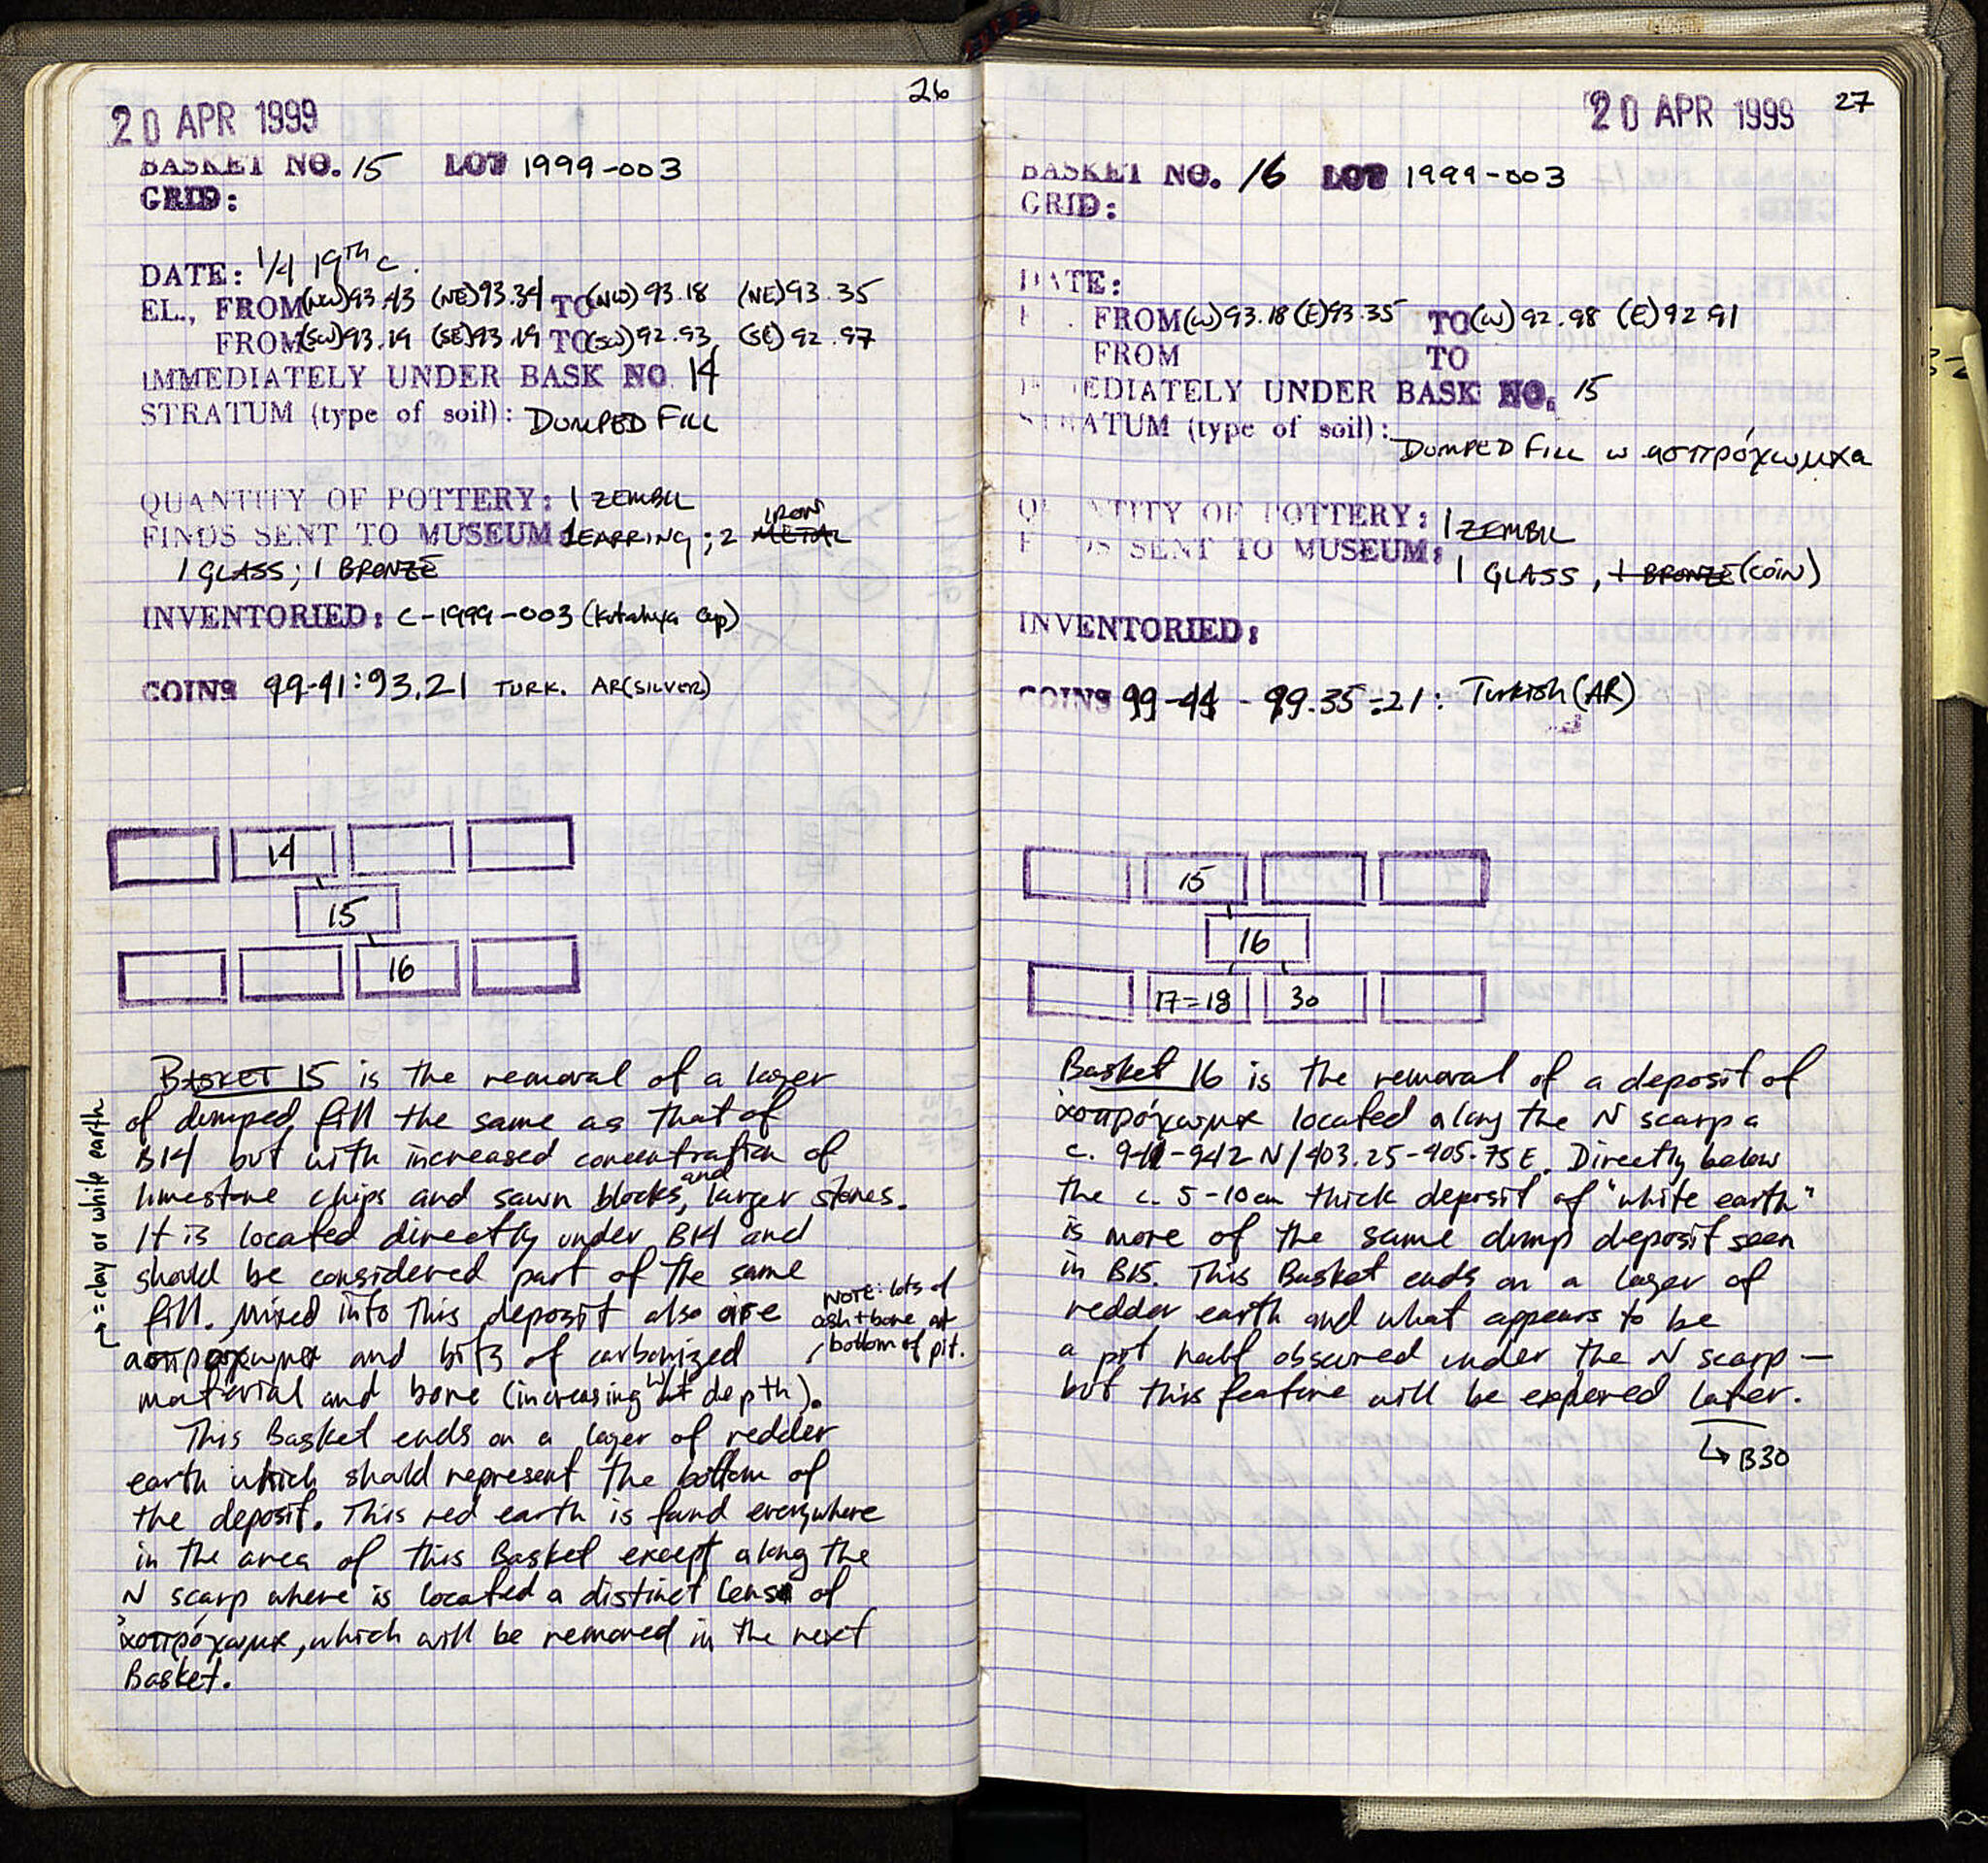 26
20 APR 1999
BASKET NO. 15 LOT 1999-003
GRID:
DATE: 1/4 19TH c.
EL., FROM (NW) 93.43 (NE) 93.34 TO (NW) 93.18 (NE) 93.35
FROM (SW) 93.19 (SE) 93.19 TO (SW) 92.93, (SE) 92.97
IMMEDIATELY UNDER BASK NO 14
STRATUM (type of soil): DUMPED FILL
QUANTITY OF POTTERY: 1 ZEMBIL
IRON
FINDS SENT TO MUSEUM: 1 EARRING; 2 METAL
1 GLASS; 1 BRONZE
INVENTORIED: C-1999-003 (Kutahya Cup)
COINS 99-41: 93.21 TURK. AR(SILVER)
14
15
16
BASKET 15 is the removal of a layer
of dumped fill the same as that of
B14 but with increased concentration of
limestone chips and sawn blocks, and larger stones.
It is located directly under B14 and
should be considered part of the same
fill. Mixed into this deposit also are
ασπρόχωμα and bits of carbonized
material and bone (increasing w/ depth).
NOTE: lots of
ash + bone at
bottom of pit.
This Basket ends on a layer of redder
earth which should represent the bottom of
the deposit. This red earth is found everywhere
in the area of this Basket except along the
N scarp where is located a distinct lens of
ἀσπρόχωμα, which will be removed in the next
Basket.
= clay or white earth
20 APR 1999 27
BASKET NO. 16 LOT 1999-003
GRID:
DATE:
FROM (W) 93.18 (E) 93.35 TO (W) 92.98 (E) 92.91
FROM TO
IMMEDIATELY UNDER BASK NO. 15
STRATUM (type of soil): DUMPED FILL w ασπρόχωμα
QUANTITY OF POTTERY: 1 ZEMBIL
FINDS SENT TO MUSEUM:
1 GLASS, 1 BRONZE (COIN)
INVENTORIED:
COINS 99-44 - 99.35=21: Turkish (AR)
15
16
17=18 30
Basket 16 is the removal of a deposit of
ἀσπρόχωμα located along the N scarp a
c. 941-942 N/403.25-405.75 E. Directly below
the c. 5-10cm thick deposit of "white earth"
is more of the same dump deposit seen
in B15. This Basket ends on a layer of
redder earth and what appears to be
a pot half obscured under the N scarp —
but this feature will be explored later.
↳ B30